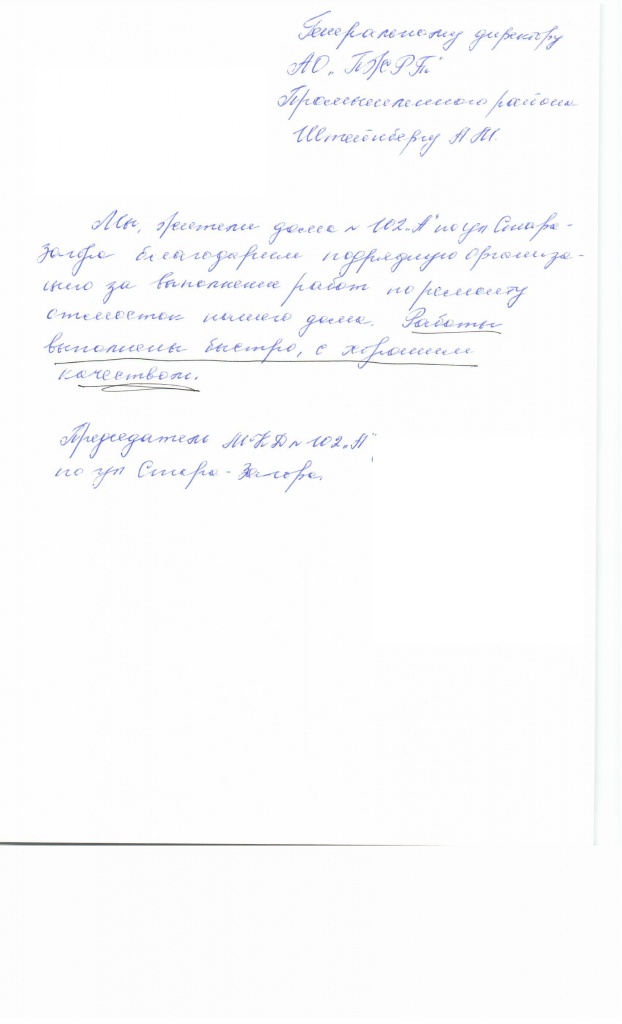 Генеральному директору
АО „ПЖРТ"
Промышленного района
Штейнбергу А.М.
Мы, жители дома № 102 „А" по ул Стара-
Загора благодарим подрядную организа-
цию за выполнение работ по ремонту
отмосток нашего дома. Работы
выполнены быстро, с хорошим
качеством.
Председатель МКД № 102 „А"
по ул Стара-Загора.